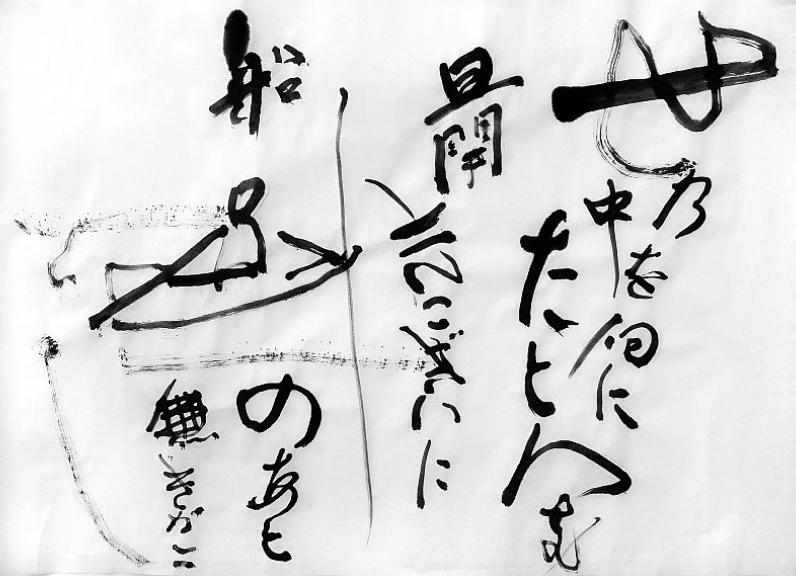 せ乃中を何に
たとへむ
旦開
こぎいに
し
船
のあと
無きがこと